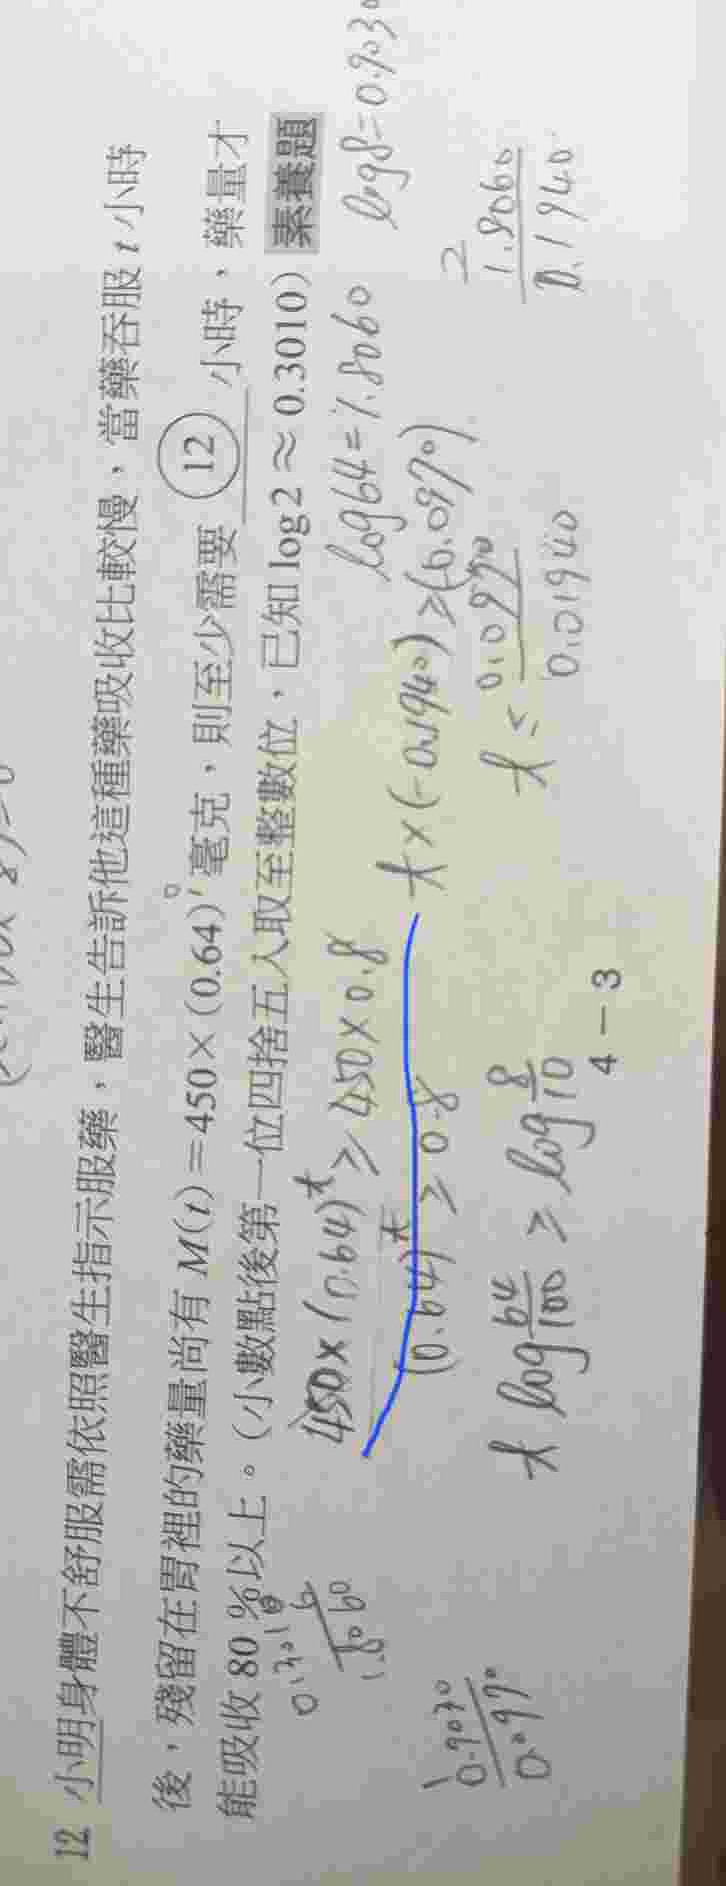 12 小明身體不舒服需依照醫生指示服藥，醫生告訴他這種藥吸收比較慢，當藥吞服 t 小時
後，殘留在胃裡的藥量尚有 M(t)=450×(0.64)^t 毫克，則至少需要 ⑫ 小時，藥量才
能吸收 80 %以上。（小數點後第一位四捨五入取至整數位，已知 log2≈0.3010） 素養題
450×(0.64)^t ≥ 450×0.8
log64=1.8060
log8=0.9030
(0.64)^t ≥ 0.8
t×(-0.1940) ≥ (0.0970)
t log 64/100 ≥ log 8/10
t ≤ 0.0970
0.01940
2
1.8060
0.1940
0.3010
6
1.8060
1
0.9030
0.0970
4－3